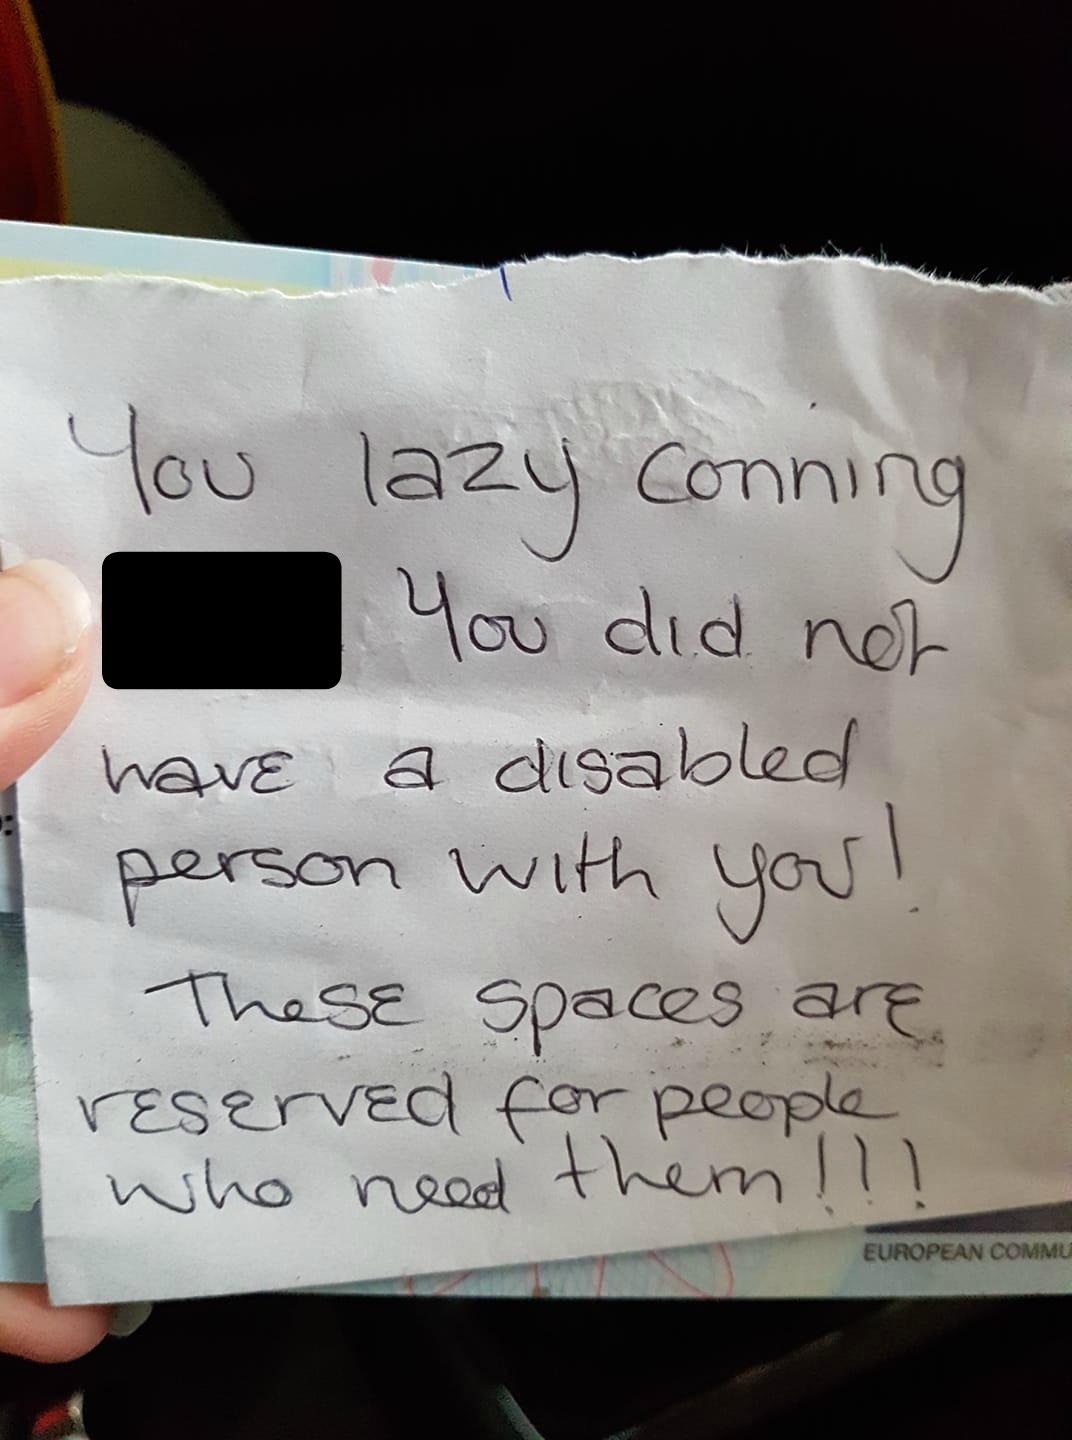 You lazy conning
You did not
have a disabled
person with you!
These spaces are
reserved for people
who need them!!!
EUROPEAN COMMU